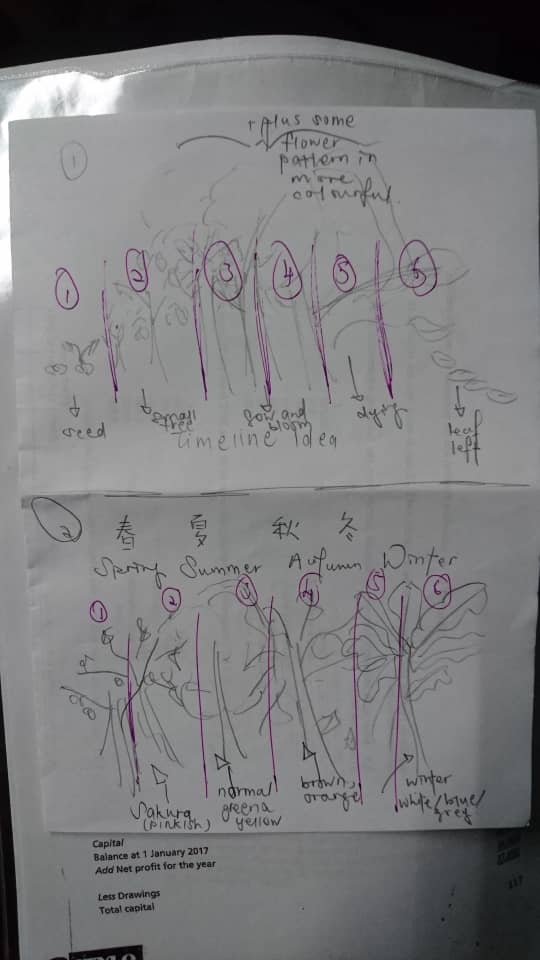 1
+ plus some
flower
pattern in
more
colourful.
1 2 3 4 5 6
seed
small
tree
and
bloom
dying
leaf
left
Timeline Idea
2
春 夏 秋 冬
Spring Summer Autumn Winter
1 2 3 4 5 6
Sakura
(pinkish)
normal
green &
yellow
brown,
orange
winter
white/blue/
grey
Capital
Balance at 1 January 2017
Add Net profit for the year
Less Drawings
Total capital
117